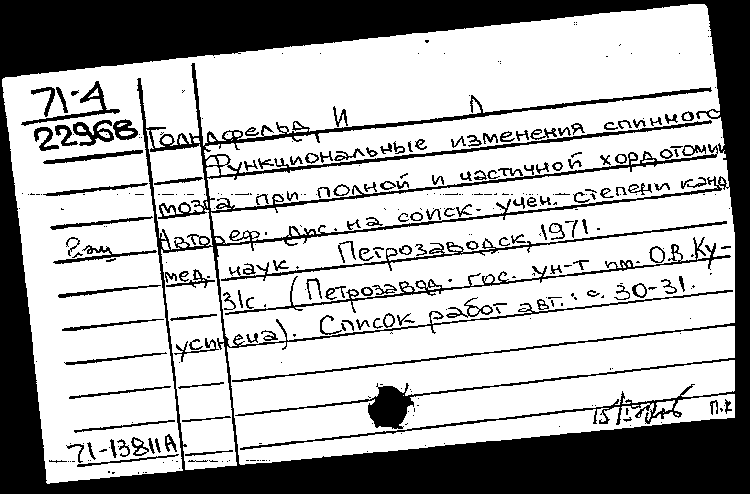 71-4
22968
Гольдфельд, И Л
Функциональные изменения спинного
мозга при полной и частичной хордотомии
Автореф. дис. на соиск. учен. степени канд
мед. наук. Петрозаводск, 1971.
31с. (Петрозавод. гос. ун-т им. О.В. Ку-
усинена). Список работ авт.: с. 30-31.
71-13811А
П.К